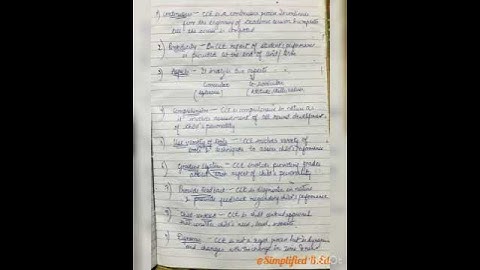 1) Continuous - CCE is a continuous process. It continues
from the beginning of academic session & complete
till the session is completed
2) Periodicity - In CCE report of student's performance
is provided at the end of unit/term
3) Aspects - It analyse two aspects
Scholastic Co-scholastic
(Subjects) (Attitude, skills, values)
4) Comprehensive - CCE is comprehensive in nature as
it involves assessment of all round development
of child's personality
5) Use variety of tools - CCE involves variety of
tools & techniques to assess child's performance
6) Grading System - CCE involves providing grades
about each aspect of child's personality
7) Provide feedback - CCE is diagnostic in nature
& provide feedback regarding child's performance
8) Child centred - CCE is child centred approach
child's need, level, interest
9) Dynamic - CCE is not a rigid process but is dynamic
and changes with the change in time & need
@Simplified B.Ed